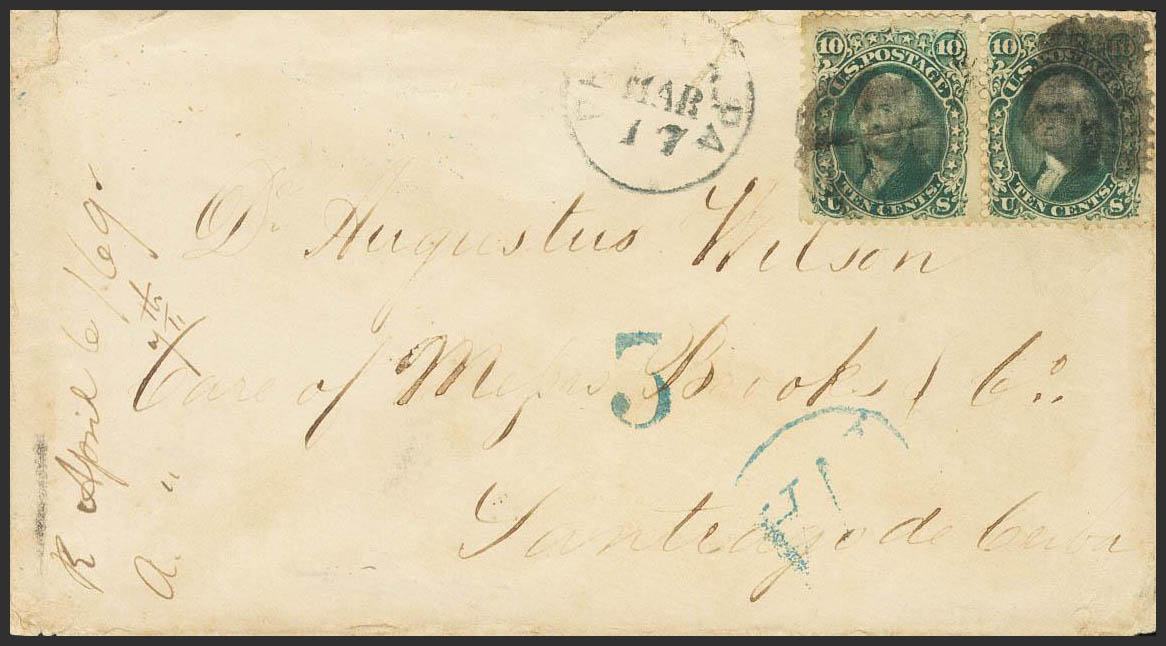 MAR
17
PA
10 10
U.S. POSTAGE
TEN CENTS.
U S
10 10
U.S. POSTAGE
TEN CENTS.
U S
Dr. Augustus Wilson
Care of Messrs Brooks & Co.
Santiago de Cuba
5
R April 6/69.
A. "